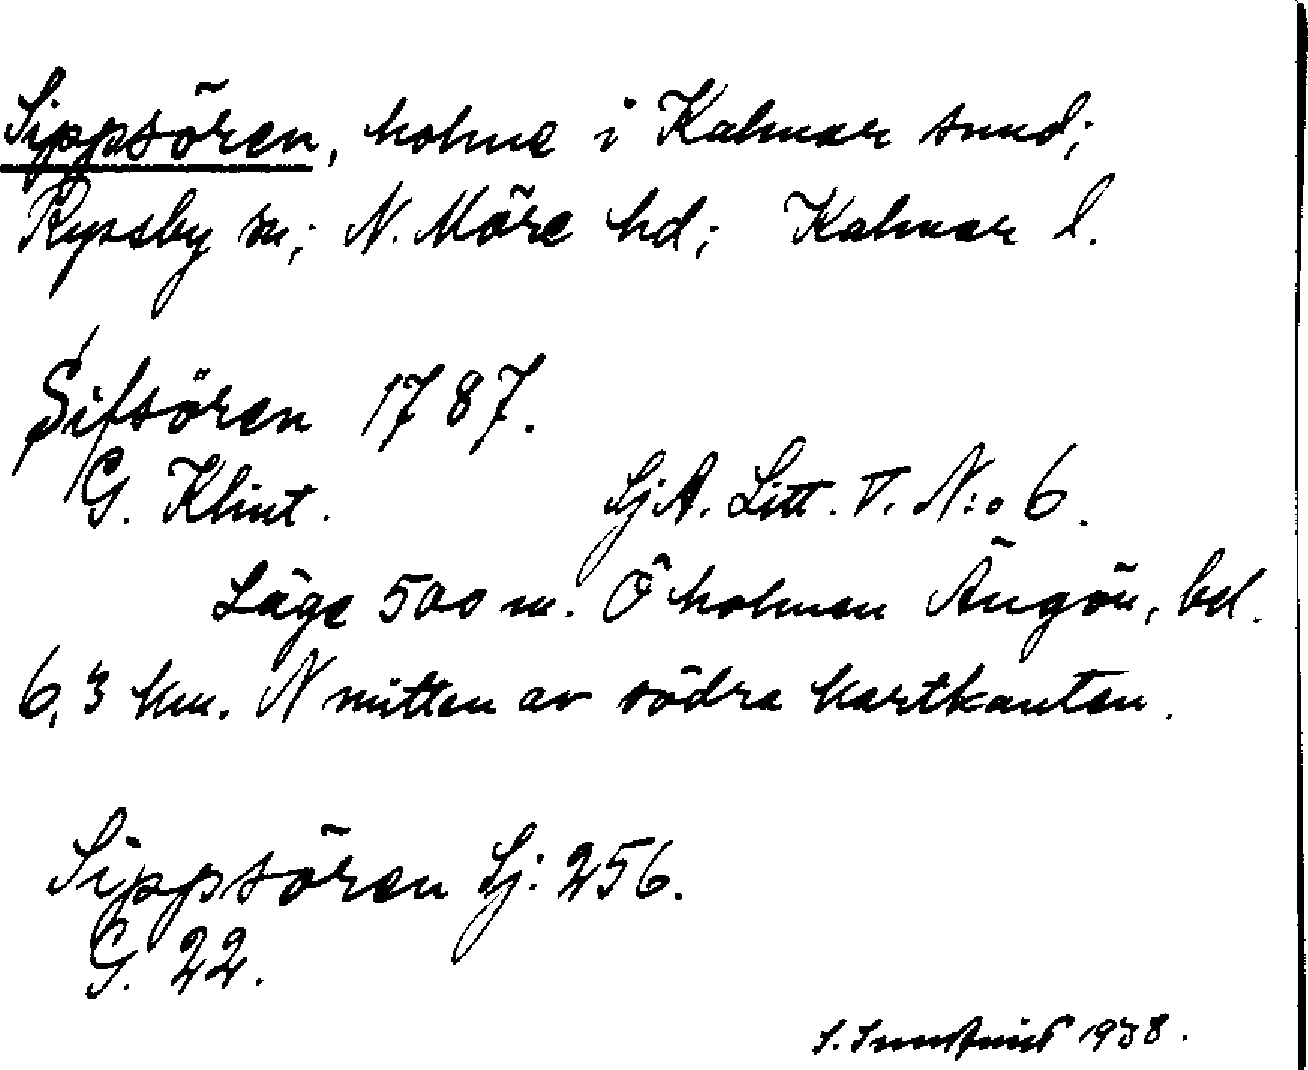 Sippsören, holme i Kalmar sund;
Ryssby sn; N. Möre hd; Kalmar l.
Sifsören 1787.
G. Klint. Sj A. Litt. V. N:o 6.
Läge 500 m. Ö holmen Ängön, bel.
6,3 km. N mitten av södra kartkanten.
Sippsören Sj: 256.
G. 22.
S. 1938.